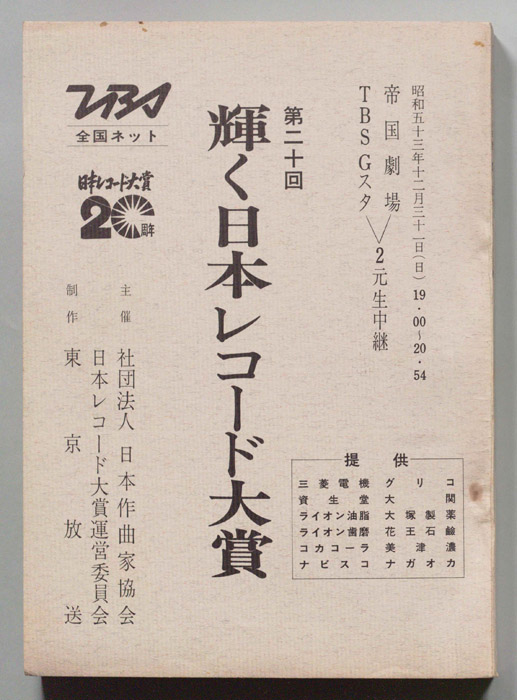 昭和五十三年十二月三十一日(日) 19・00〜20・54
帝国劇場
TBS Gスタ
2元生中継
第二十回
輝く日本レコード大賞
TBS
全国ネット
日本レコード大賞
20周年
主催 社団法人 日本作曲家協会
日本レコード大賞運営委員会
制作 東京放送
提供
三菱電機 グリコ
資生堂 大関
ライオン油脂 大塚製薬
ライオン歯磨 花王石鹼
コカコーラ 美津濃
ナビスコ ナガオカ